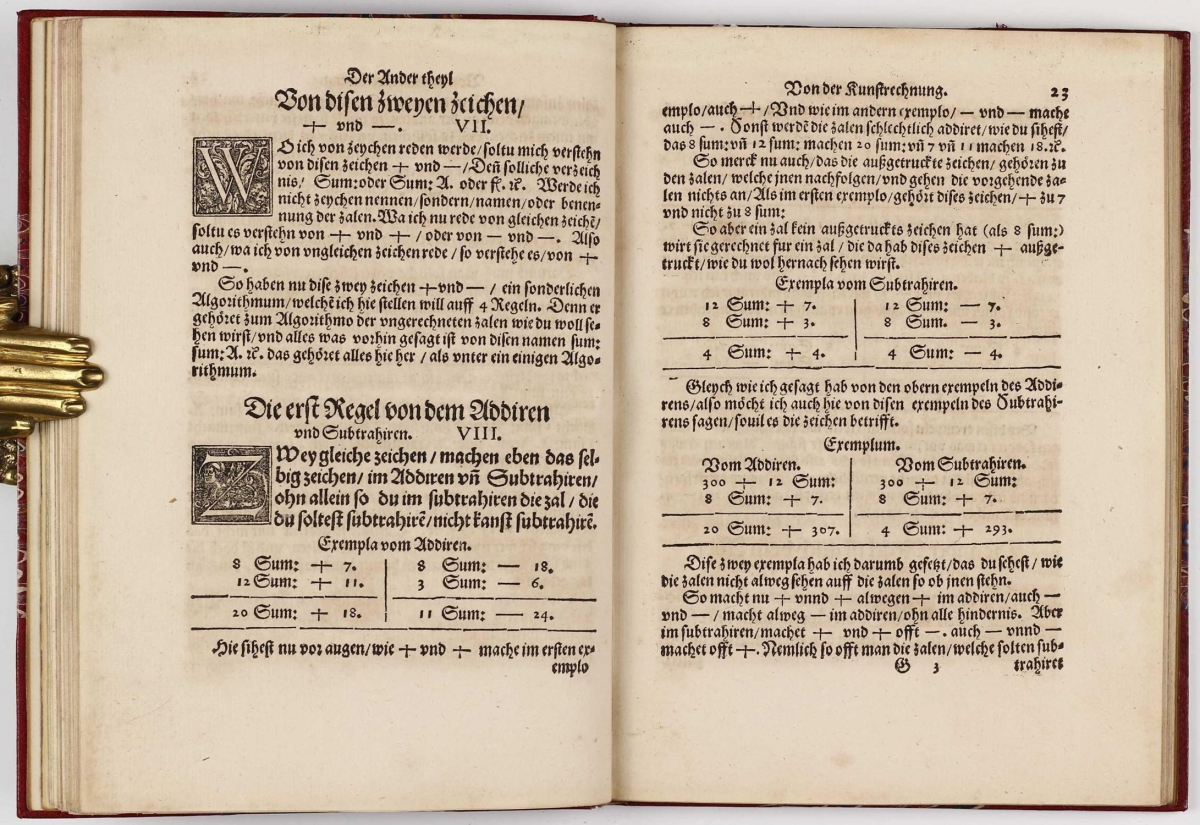 Der Ander theyl
Von disen zweyen zeichen/
+ vnd —. VII.
WO ich von zeychen reden werde/soltu mich verstehn
von disen zeichen + vnd —/Deñ solliche verzeich
nis/ Sum: oder Sum: A. oder fl. ꝛc̃. Werde ich
nicht zeychen nennen/sondern/namen/oder benen-
nung der zalen. Wa ich nu rede von gleichen zeichẽ/
soltu es verstehn von + vnd +/oder von — vnd —. Also
auch/wa ich von vngleichen zeichen rede/so verstehe es/von +
vnd —.
So haben nu dise zwey zeichen + vnd —/ ein sonderlichen
Algorithmum/welchẽ ich hie stellen will auff 4 Regeln. Denn er
gehöret zum Algorithmo der vngerechneten zalen wie du woll se-
hen wirst/vnd alles was vorhin gesagt ist von disen namen sum:
sum: A. ꝛc̃. das gehöret alles hie her/als vnter ein einigen Algo-
rithmum.
Die erst Regel von dem Addiren
vnd Subtrahiren. VIII.
ZWey gleiche zeichen/machen eben das sel-
big zeichen/im Addiren vñ Subtrahiren/
ohn allein so du im subtrahiren die zal/die
du soltest subtrahirẽ/nicht kanst subtrahirẽ.
Exempla vom Addiren.
8 Sum: + 7. 8 Sum: — 18.
12 Sum: + 11. 3 Sum: — 6.
20 Sum: + 18. 11 Sum: — 24.
Hie sihest nu vor augen/wie + vnd + mache im ersten ex-
emplo
Von der Kunstrechnung. 23
emplo/auch +/Vnd wie im andern exemplo/ — vnd — mache
auch —. Sonst werdẽ die zalen schlechtlich addiret/wie du sihest/
das 8 sum: vñ 12 sum: machen 20 sum: vñ 7 vñ 11 machen 18. ꝛc̃.
So merck nu auch/das die außgetruckte zeichen/ gehören zu
den zalen/welche jnen nachfolgen/vnd gehen die vorgehende za-
len nichts an/Als im ersten exemplo/gehört dises zeichen/+ zu 7
vnd nicht zu 8 sum:
So aber ein zal kein außgetruckts zeichen hat (als 8 sum:)
wirt sie gerechnet fur ein zal/die da hab dises zeichen + außge-
truckt/wie du wol hernach sehen wirst.
Exempla vom Subtrahiren.
12 Sum: + 7. 12 Sum: — 7.
8 Sum: + 3. 8 Sum. — 3.
4 Sum: + 4. 4 Sum: — 4.
Gleych wie ich gesagt hab von den obern exempeln des Addi-
rens/also möcht ich auch hie von disen exempeln des Subtrahi-
rens sagen/souil es die zeichen betrifft.
Exemplum.
Vom Addiren. Vom Subtrahiren.
300 + 12 Sum: 300 + 12 Sum:
8 Sum: + 7. 8 Sum: + 7.
20 Sum: + 307. 4 Sum: + 293.
Dise zwey exempla hab ich darumb gesetzt/das du sehest/ wie
die zalen nicht alweg sehen auff die zalen so ob jnen stehn.
So macht nu + vnnd + alwegen + im addiren/auch —
vnd —/ macht alweg — im addiren/ohn alle hindernis. Aber
im subtrahiren/machet + vnd + offt —. auch — vnnd —
machet offt +. Nemlich so offt man die zalen/welche solten sub-
G 3 trahiret